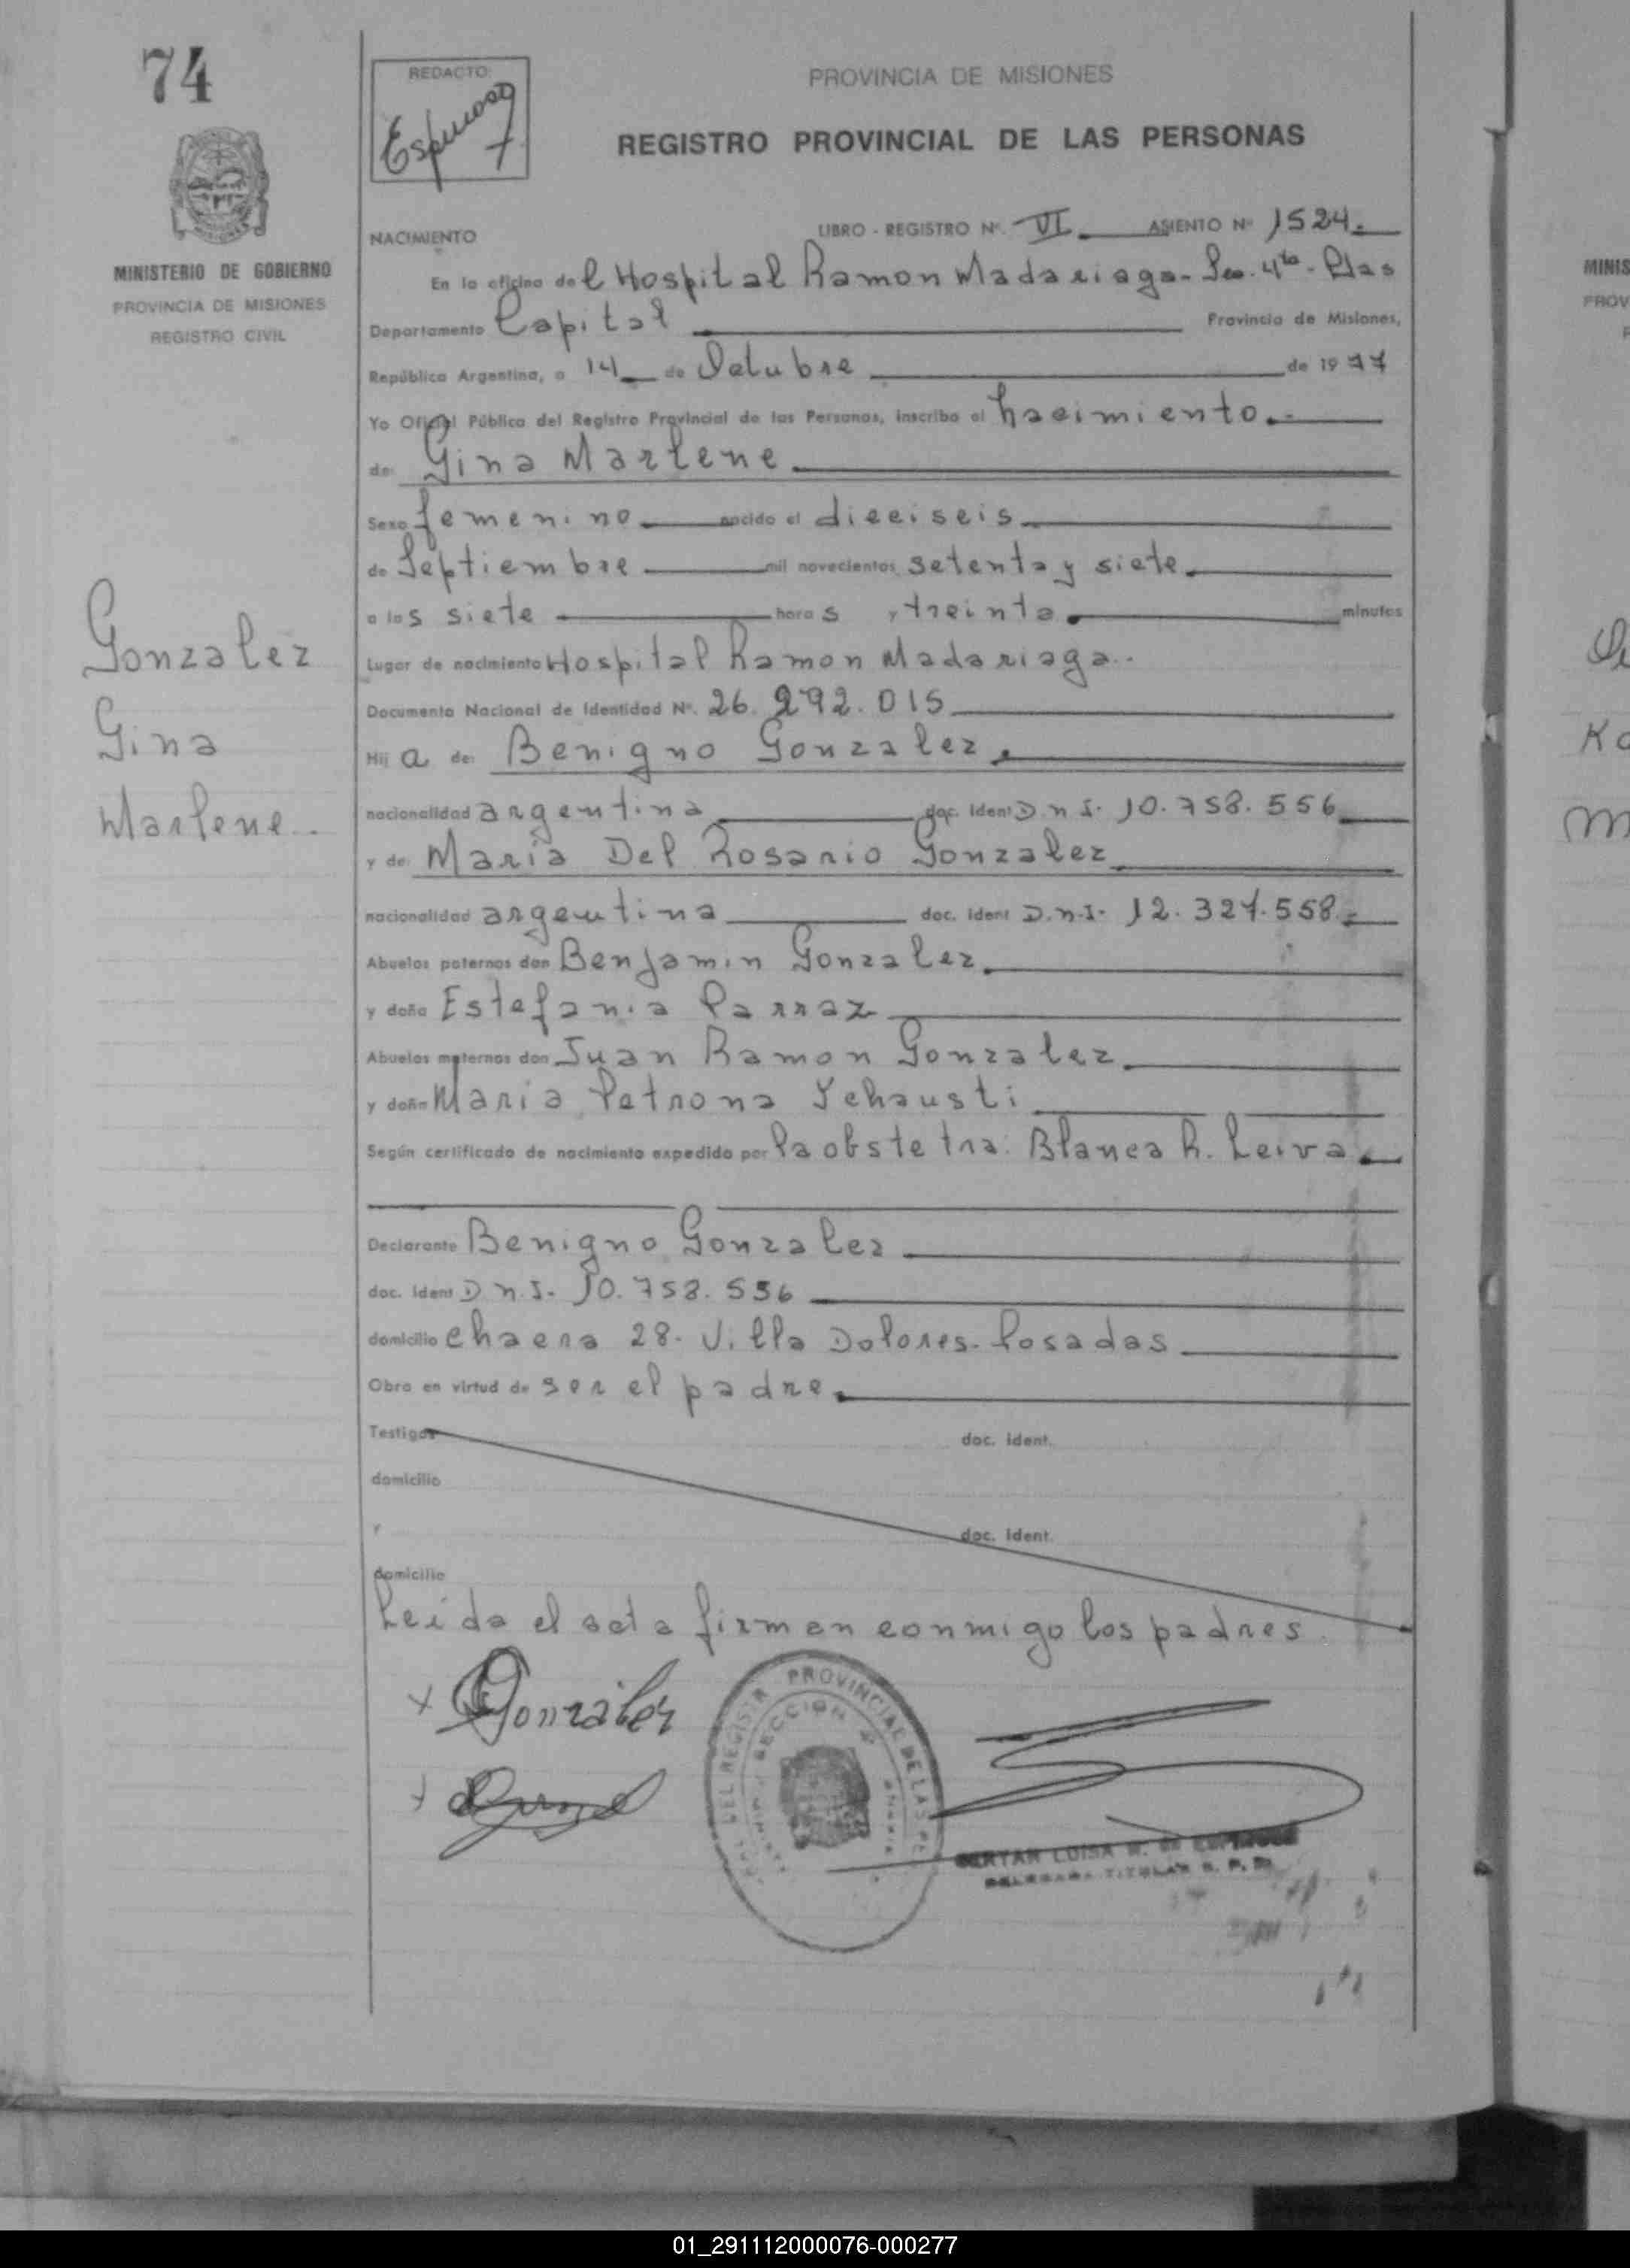 74
REDACTO:
Espinosa
PROVINCIA DE MISIONES
REGISTRO PROVINCIAL DE LAS PERSONAS
MINISTERIO DE GOBIERNO
PROVINCIA DE MISIONES
REGISTRO CIVIL
NACIMIENTO
LIBRO - REGISTRO Nº. VI ASIENTO Nº 1524.
En la oficina del Hospital Ramon Madariaga - Sec. 4ta - Pdas
Departamento Capital Provincia de Misiones,
República Argentina, a 14 de Octubre de 1977
Yo Oficial Público del Registro Provincial de las Personas, inscribo el nacimiento.-
de: Gina Marlene
Sexo femenino nacido el dieciseis
de Septiembre mil novecientos setenta y siete
a las siete horas y treinta minutos
Lugar de nacimiento Hospital Ramon Madariaga.-
Documento Nacional de Identidad Nº. 26.292.015
Hija de: Benigno Gonzalez
nacionalidad argentina doc. ident D.n.I. 10.758.556
y de: Maria Del Rosario Gonzalez
nacionalidad argentina doc. ident D.n.I. 12.327.558.-
Abuelos paternos don Benjamin Gonzalez
y doña Estefania Parraz
Abuelos maternos don Juan Ramon Gonzalez
y doña Maria Petrona
Según certificado de nacimiento expedido por la obstetra: Blanca R. Leiva
Declarante Benigno Gonzalez
doc. ident D.n.I. 10.758.556
domicilio chacra 28. Villa Dolores - Posadas
Obra en virtud de ser el padre
Testigos doc. ident.
domicilio
y doc. ident.
domicilio
Leida el acta firman conmigo los padres.
Gonzalez
Gina
Marlene.-
x Gonzalez
x
PROVINCIAL DE LAS
DEL REGISTR
SECCION 4
TITULAR R. P. P.
MINIS
PROV
01_291112000076-000277